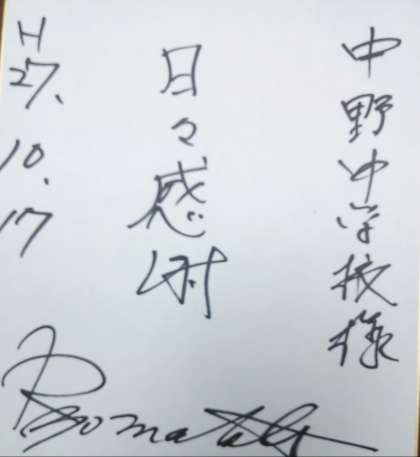 中野中学校様
日々感謝
H27.10.17